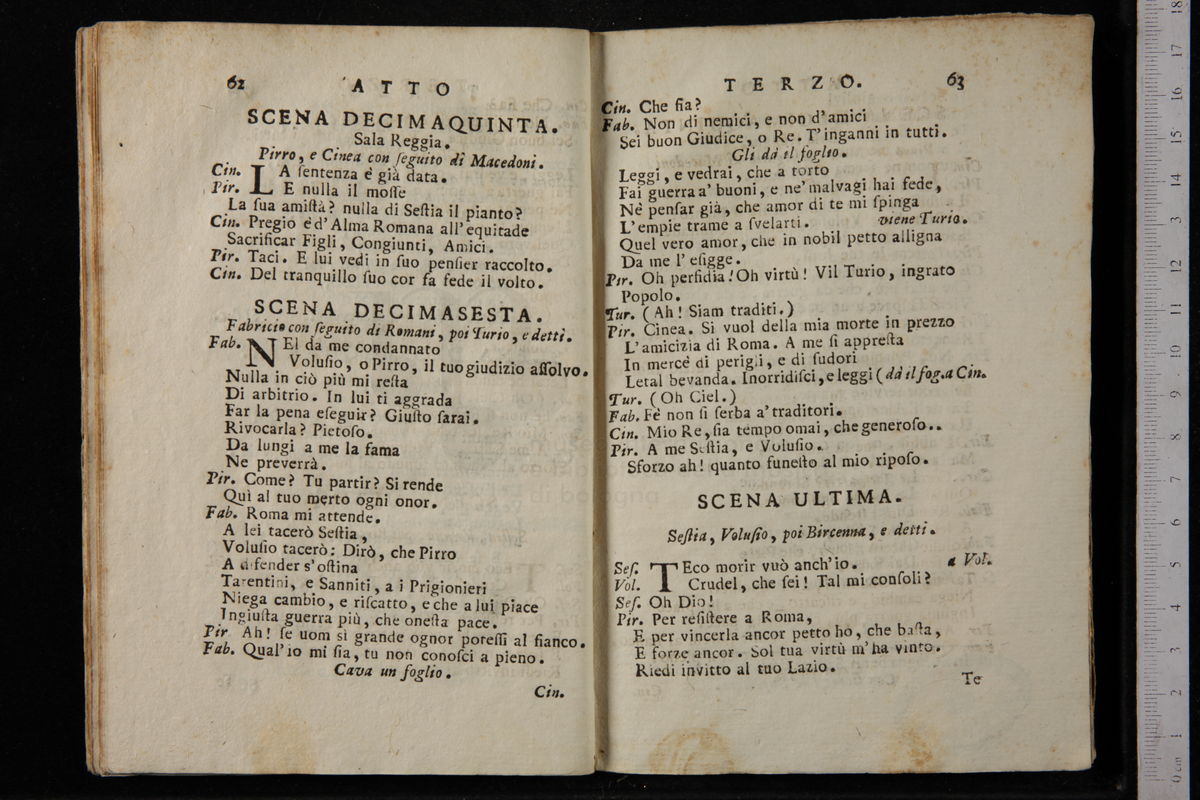 62 ATTO
SCENA DECIMAQUINTA.
Sala Reggia.
Pirro, e Cinea con ſeguito di Macedoni.
Cin. LA ſentenza è già data.
Pir. E nulla il moſſe
La ſua amiſtà? nulla di Seſtia il pianto?
Cin. Pregio è d'Alma Romana all'equitade
Sacrificar Figli, Congiunti, Amici.
Pir. Taci. E lui vedi in ſuo penſier raccolto.
Cin. Del tranquillo ſuo cor fa fede il volto.
SCENA DECIMASESTA.
Fabricio con ſeguito di Romani, poi Turio, e detti.
Fab. NEl da me condannato
Voluſio, o Pirro, il tuo giudizio aſſolvo.
Nulla in ciò più mi reſta
Di arbitrio. In lui ti aggrada
Far la pena eſeguir? Giuſto ſarai.
Rivocarla? Pietoſo.
Da lungi a me la fama
Ne preverrà.
Pir. Come? Tu partir? Si rende
Quì al tuo merto ogni onor.
Fab. Roma mi attende.
A lei tacerò Seſtia,
Voluſio tacerò: Dirò, che Pirro
A difender s'oſtina
Tarentini, e Sanniti, a i Prigionieri
Niega cambio, e riſcatto, e che a lui piace
Ingiuſta guerra più, che oneſta pace.
Pir Ah! ſe uom sì grande ognor poteſſi al fianco.
Fab. Qual'io mi ſia, tu non conoſci a pieno.
Cava un foglio.
Cin.
TERZO. 63
Cin. Che ſia?
Fab. Non di nemici, e non d'amici
Sei buon Giudice, o Re. T'inganni in tutti.
Gli dà il foglio.
Leggi, e vedrai, che a torto
Fai guerra a' buoni, e ne' malvagi hai fede,
Nè penſar già, che amor di te mi ſpinga
L'empie trame a ſvelarti. viene Turio.
Quel vero amor, che in nobil petto alligna
Da me l'eſigge.
Pir. Oh perfidia! Oh virtù! Vil Turio, ingrato
Popolo.
Tur. (Ah! Siam traditi.)
Pir. Cinea. Si vuol della mia morte in prezzo
L'amicizia di Roma. A me ſi appreſta
In mercè di perigli, e di ſudori
Letal bevanda. Inorridiſci, e leggi (dà il fog. a Cin.
Tur. (Oh Ciel.)
Fab. Fè non ſi ſerba a' traditori.
Cin. Mio Re, ſia tempo omai, che generoſo..
Pir. A me Seſtia, e Voluſio.
Sforzo ah! quanto funeſto al mio ripoſo.
SCENA ULTIMA.
Seſtia, Voluſio, poi Bircenna, e detti.
Seſ. TEco morir vuò anch'io. a Vol.
Vol. Crudel, che ſei! Tal mi conſoli?
Seſ. Oh Dio!
Pir. Per reſiſtere a Roma,
E per vincerla ancor petto ho, che baſta,
E forze ancor. Sol tua virtù m'ha vinto.
Riedi invitto al tuo Lazio.
Te